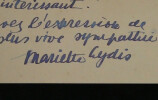 intéressant.
vez l'expression de
plus vive sympathie
Mariette Lydis